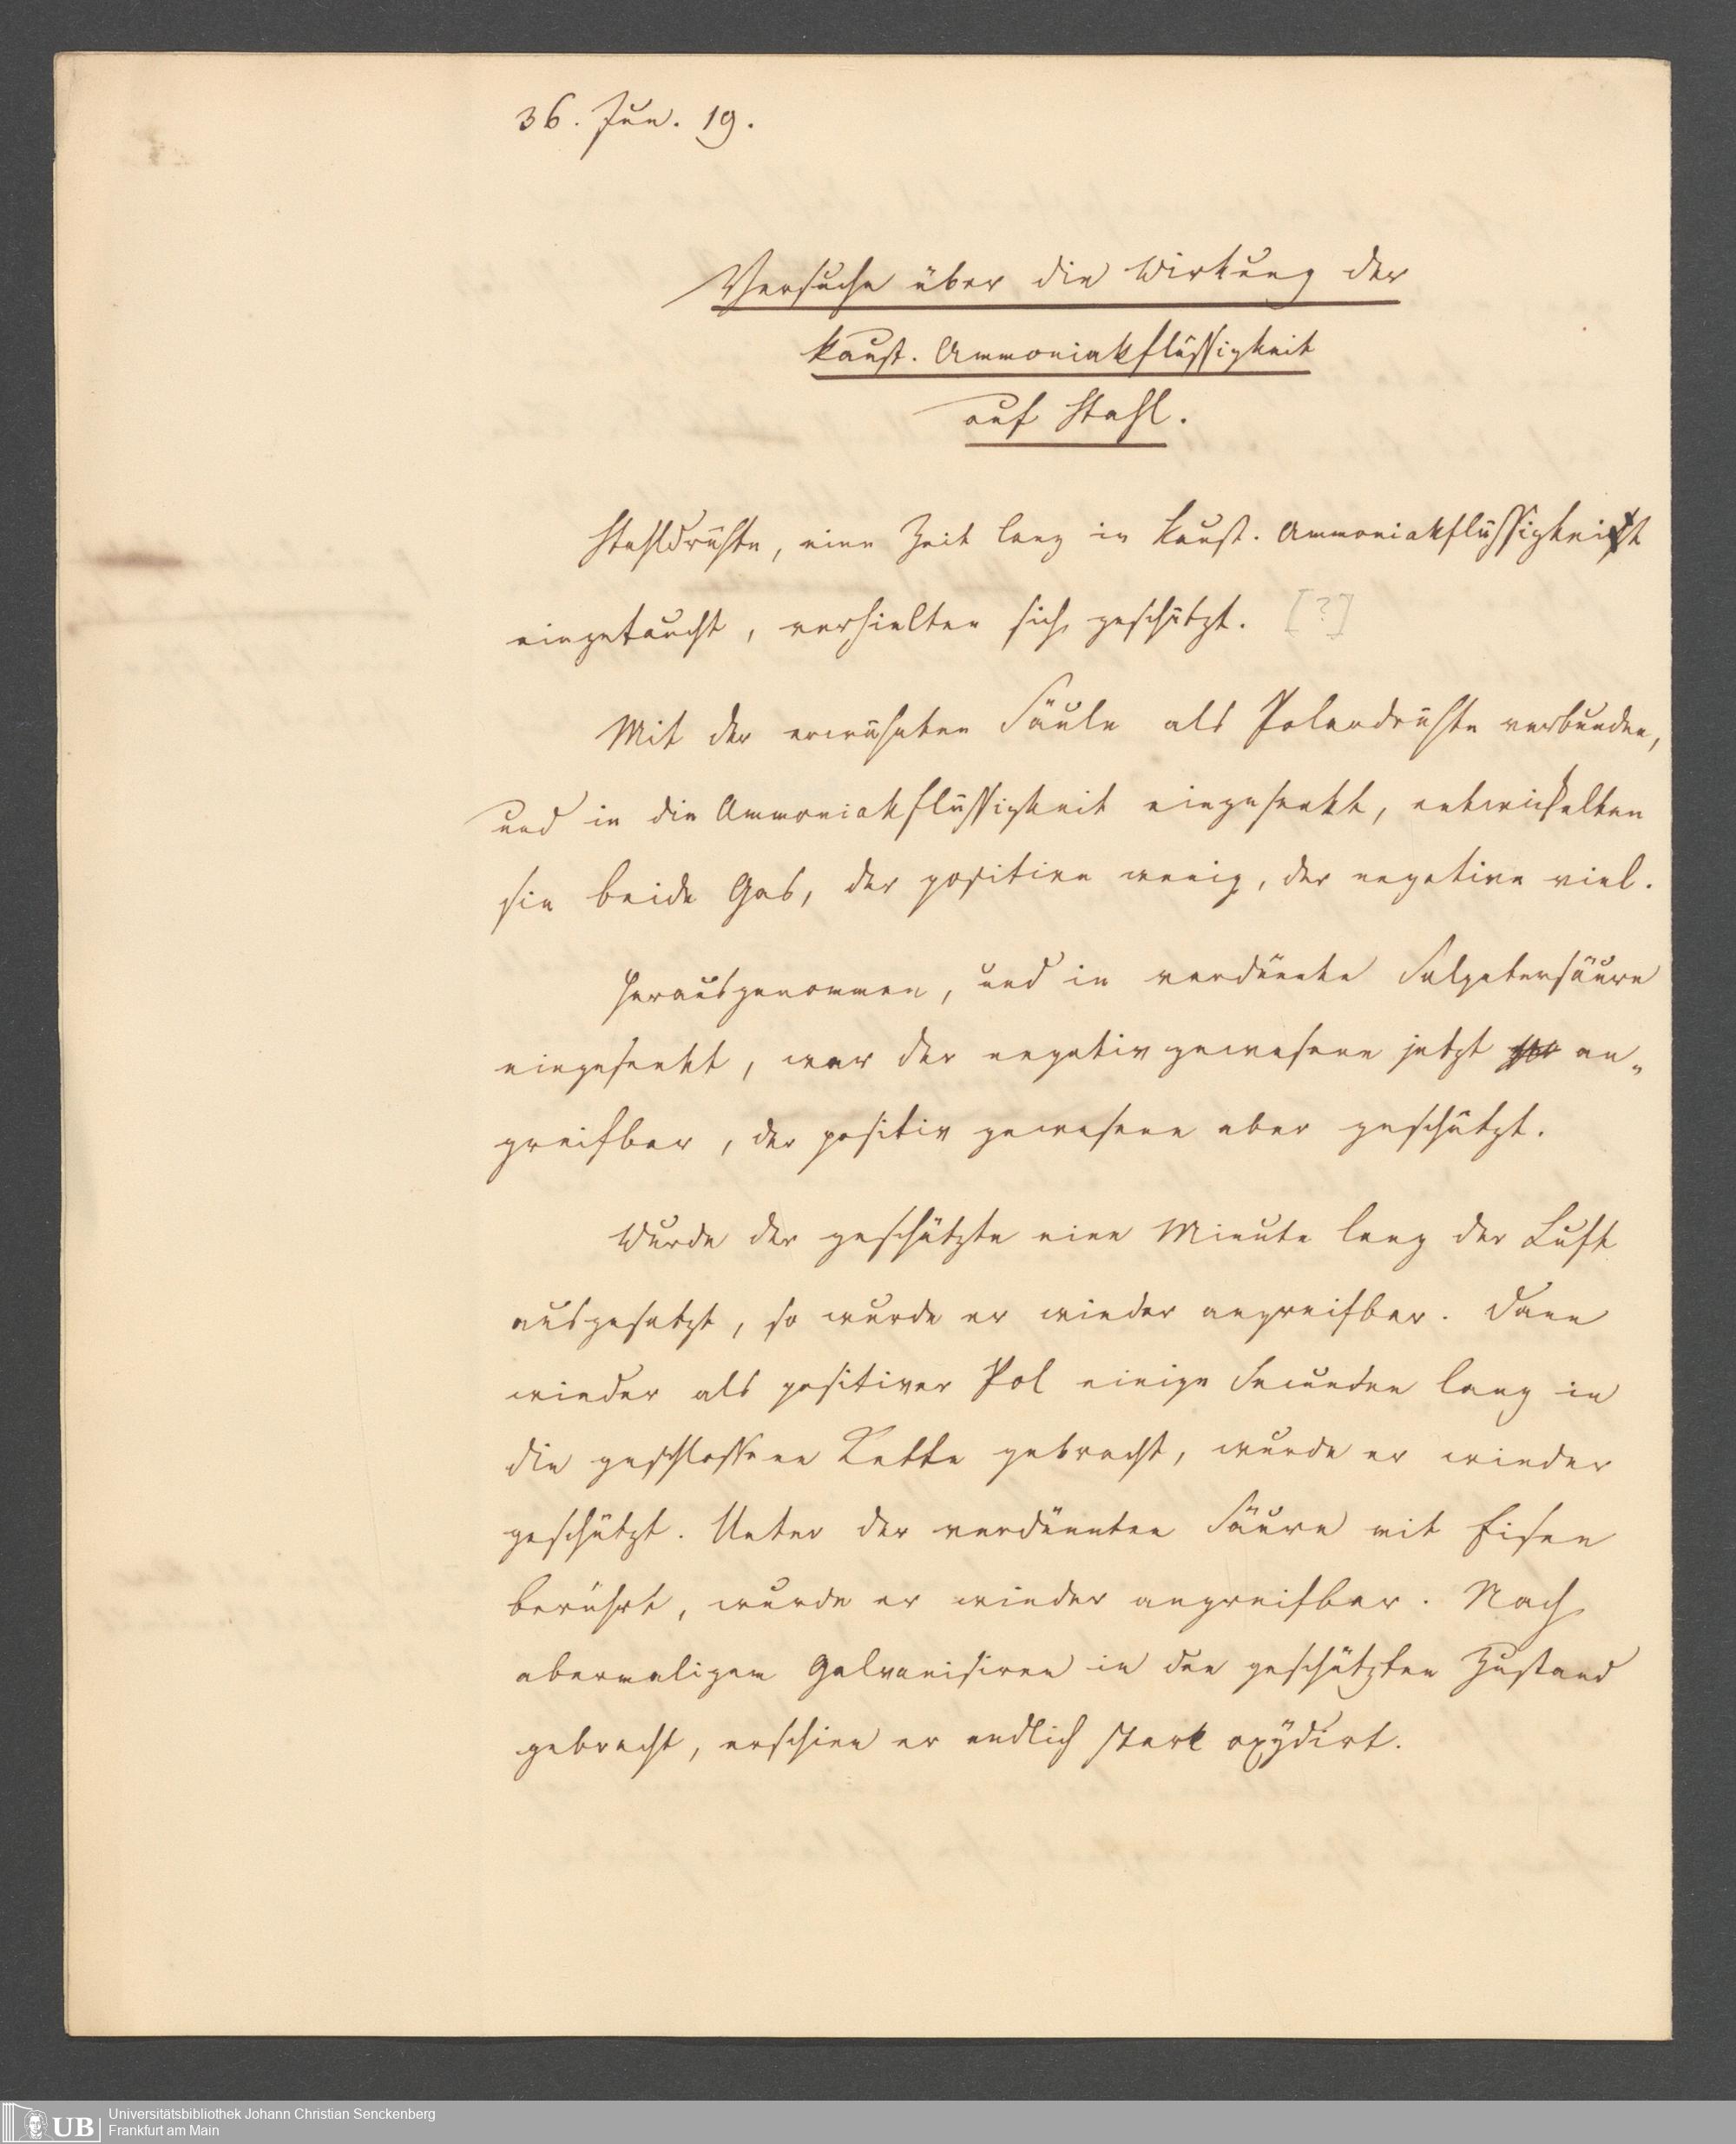 36. Jun. 19.
Versuche über die Wirkung der
kaust. Ammoniakflüssigkeit
auf Stahl.
Stahldrähte, eine Zeit lang in kaust. Ammoniakflüssigkeit
eingetaucht, verhielten sich geschützt. [?]
Mit der erwähnten Säule als Polardrähte verbunden,
und in die Ammoniakflüssigkeit eingesenkt, entwickelten
sie beide Gas, der positive wenig, der negative viel.
Herausgenommen, und in verdünnte Salpetersäure
eingesenkt, war der negativ gewesene jetzt an„
greifbar, der positiv gewesene aber geschützt.
Wurde der geschützte eine Minute lang der Luft
ausgesetzt, so wurde er wieder angreifbar. Dann
wieder als positiver Pol einige Secunden lang in
die geschlossene Kette gebracht, wurde er wieder
geschützt. Unter der verdünnten Säure mit Eisen
berührt, wurde er wieder angreifbar. Nach
abermaligem Galvanisiren in den geschützten Zustand
gebracht, erschien er endlich stark oxÿdirt.
UB
Universitätsbibliothek Johann Christian Senckenberg
Frankfurt am Main